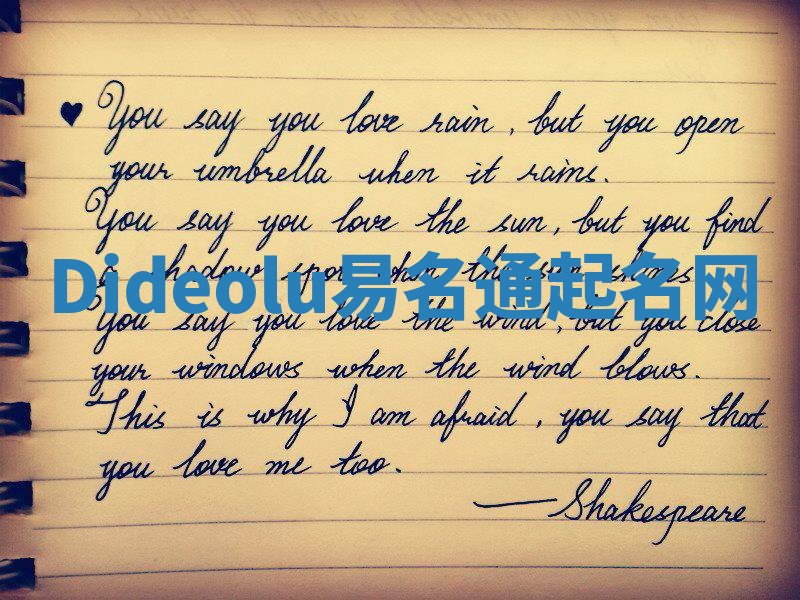 ♥ You say you love rain, but you open
your umbrella when it rains.
You say you love the sun, but you find
a shadow spot when the sun shines
Dideolu易名通起名网
You say you love the wind, but you close
your windows when the wind blows.
This is why I am afraid, you say that
you love me too.
—Shakespeare